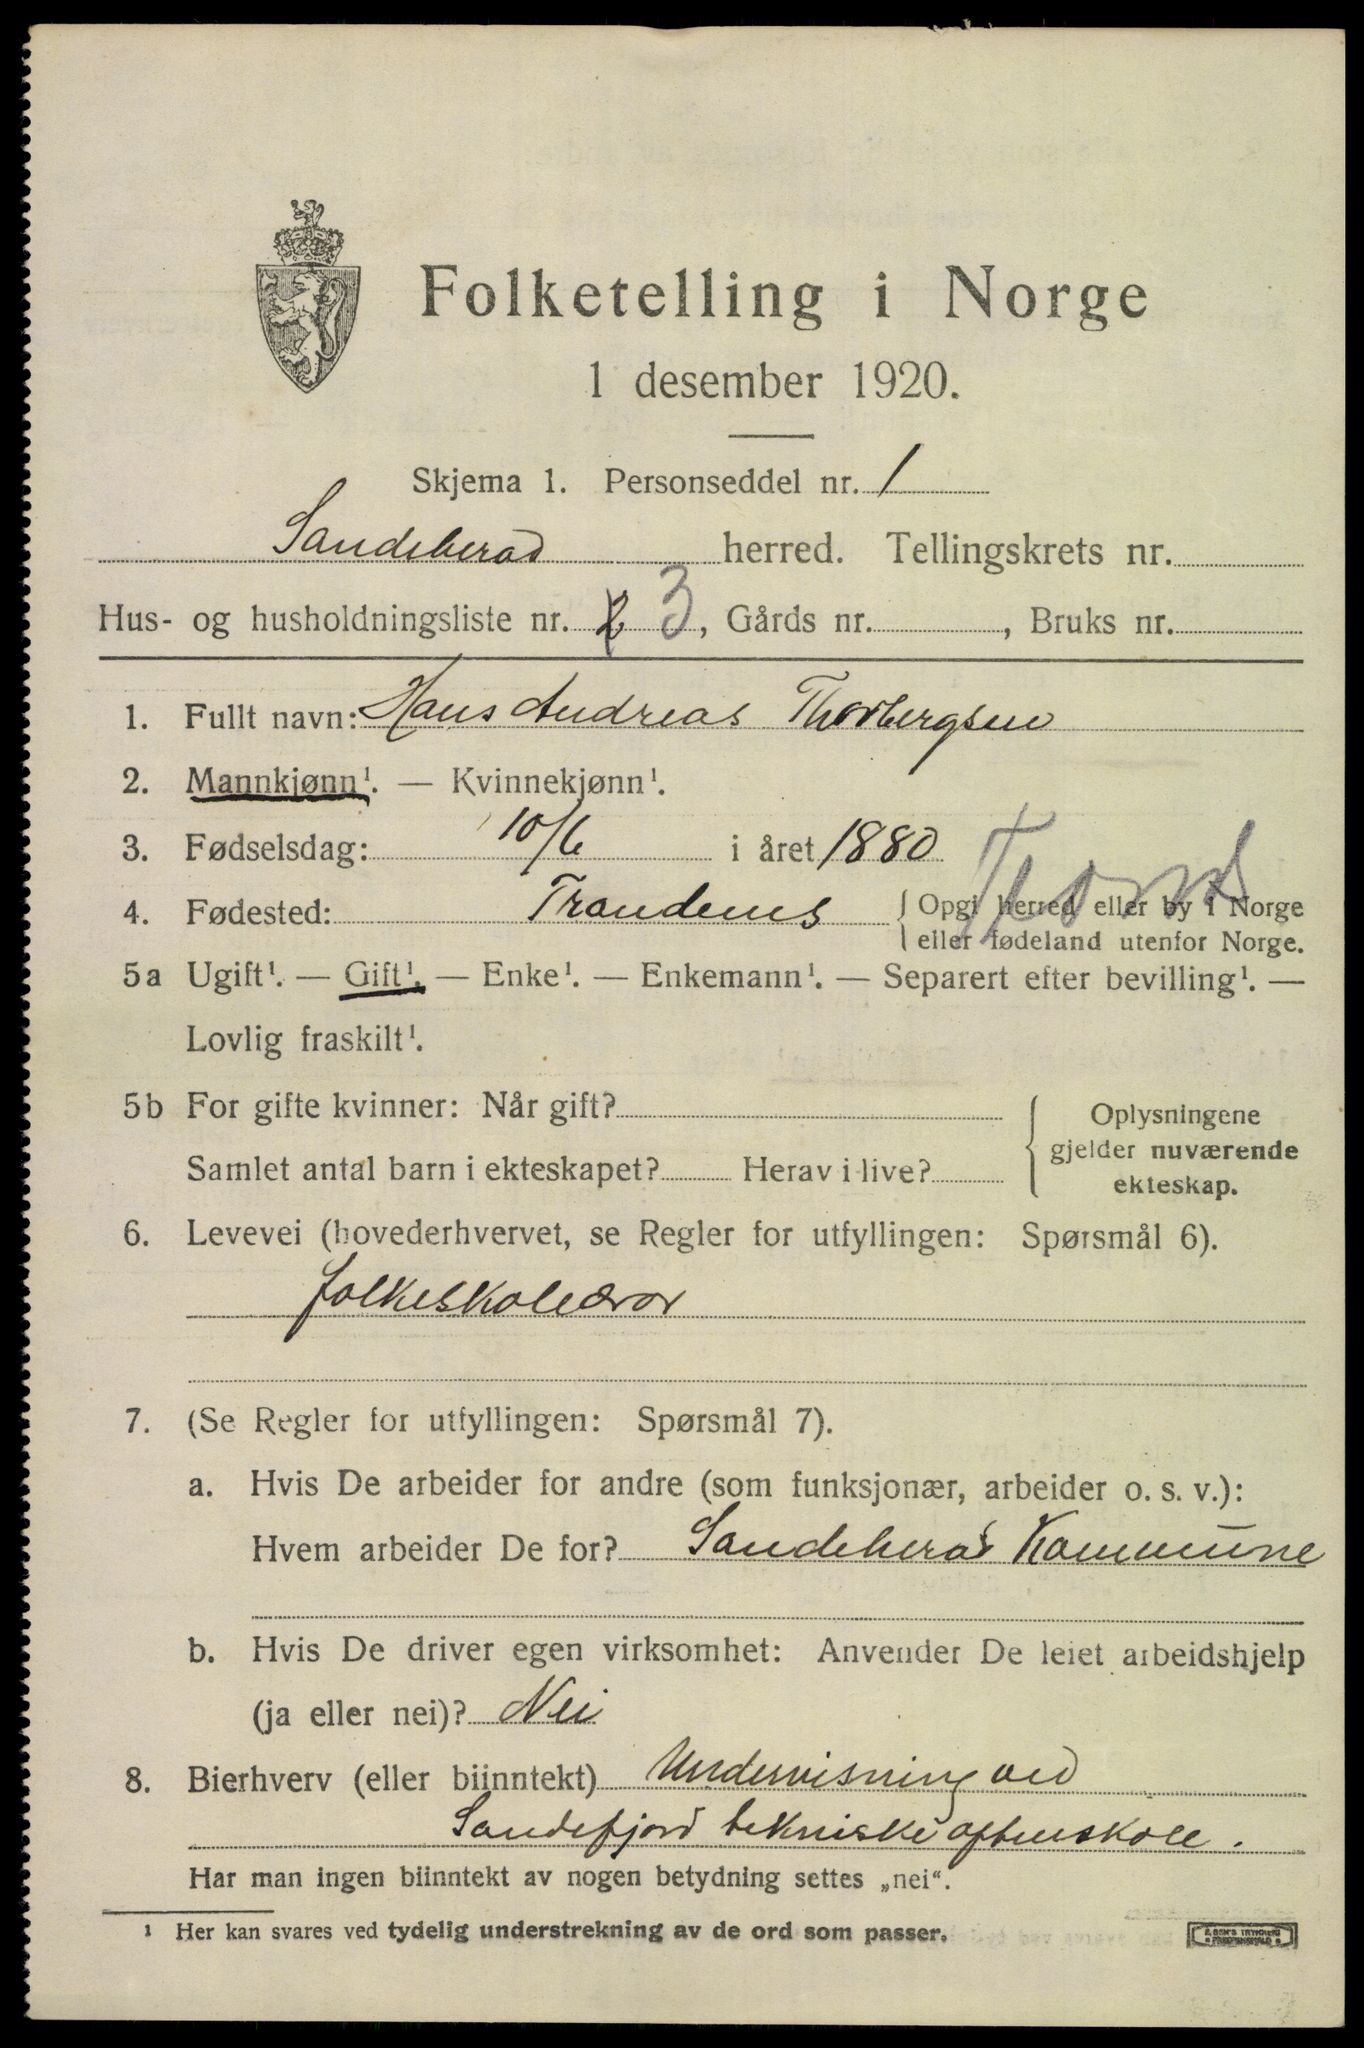 Folketelling i Norge
1 desember 1920.
Skjema 1. Personseddel nr. 1
Sandeherad herred. Tellingskrets nr.
Hus- og husholdningsliste nr. 2 3, Gårds nr. , Bruks nr.
1. Fullt navn: Hans Andreas Thorbergsen
2. Mannkjønn¹. — Kvinnekjønn¹.
3. Fødselsdag: 10/6 i året 1880
4. Fødested: Trondenes { Opgi herred eller by i Norge
eller fødeland utenfor Norge.
5a Ugift¹. — Gift¹. — Enke¹. — Enkemann¹. — Separert efter bevilling¹. —
Lovlig fraskilt¹.
5b For gifte kvinner: Når gift?
Samlet antal barn i ekteskapet? Herav i live?
{ Oplysningene
gjelder nuværende
ekteskap.
6. Levevei (hovederhvervet, se Regler for utfyllingen: Spørsmål 6).
folkeskolelærer
7. (Se Regler for utfyllingen: Spørsmål 7).
a. Hvis De arbeider for andre (som funksjonær, arbeider o. s. v.):
Hvem arbeider De for? Sandeherad Kommune
b. Hvis De driver egen virksomhet: Anvender De leiet arbeidshjelp
(ja eller nei)? Nei
8. Bierhverv (eller biinntekt) Undervisning ved
Sandefjord tekniske aftenskole.
Har man ingen biinntekt av nogen betydning settes „nei“.
¹ Her kan svares ved tydelig understrekning av de ord som passer.